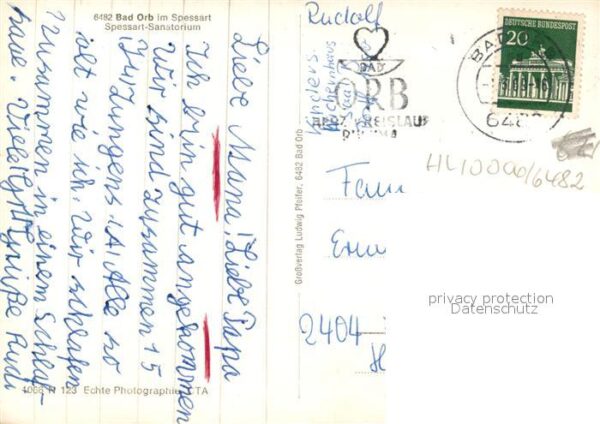 6482 Bad Orb im Spessart
Spessart-Sanatorium
Liebe Mama! Liebe Papa
Ich bin gut angekommen
Wir sind zusammen 15
Jungens Alle so
alt wie ich. Wir schlafen
zusammen in einem Schlaf-
Viele Grüße Rudi
1066 R 123 Echte Photographie CTA
Großverlag Ludwig Pfeifer, 6482 Bad Orb
Rudolf
BAD
ORB
HERZ KREISLAUF
DEUTSCHE BUNDESPOST
20
BAD
HL10000/6482
Fam
2404
privacy protection
Datenschutz